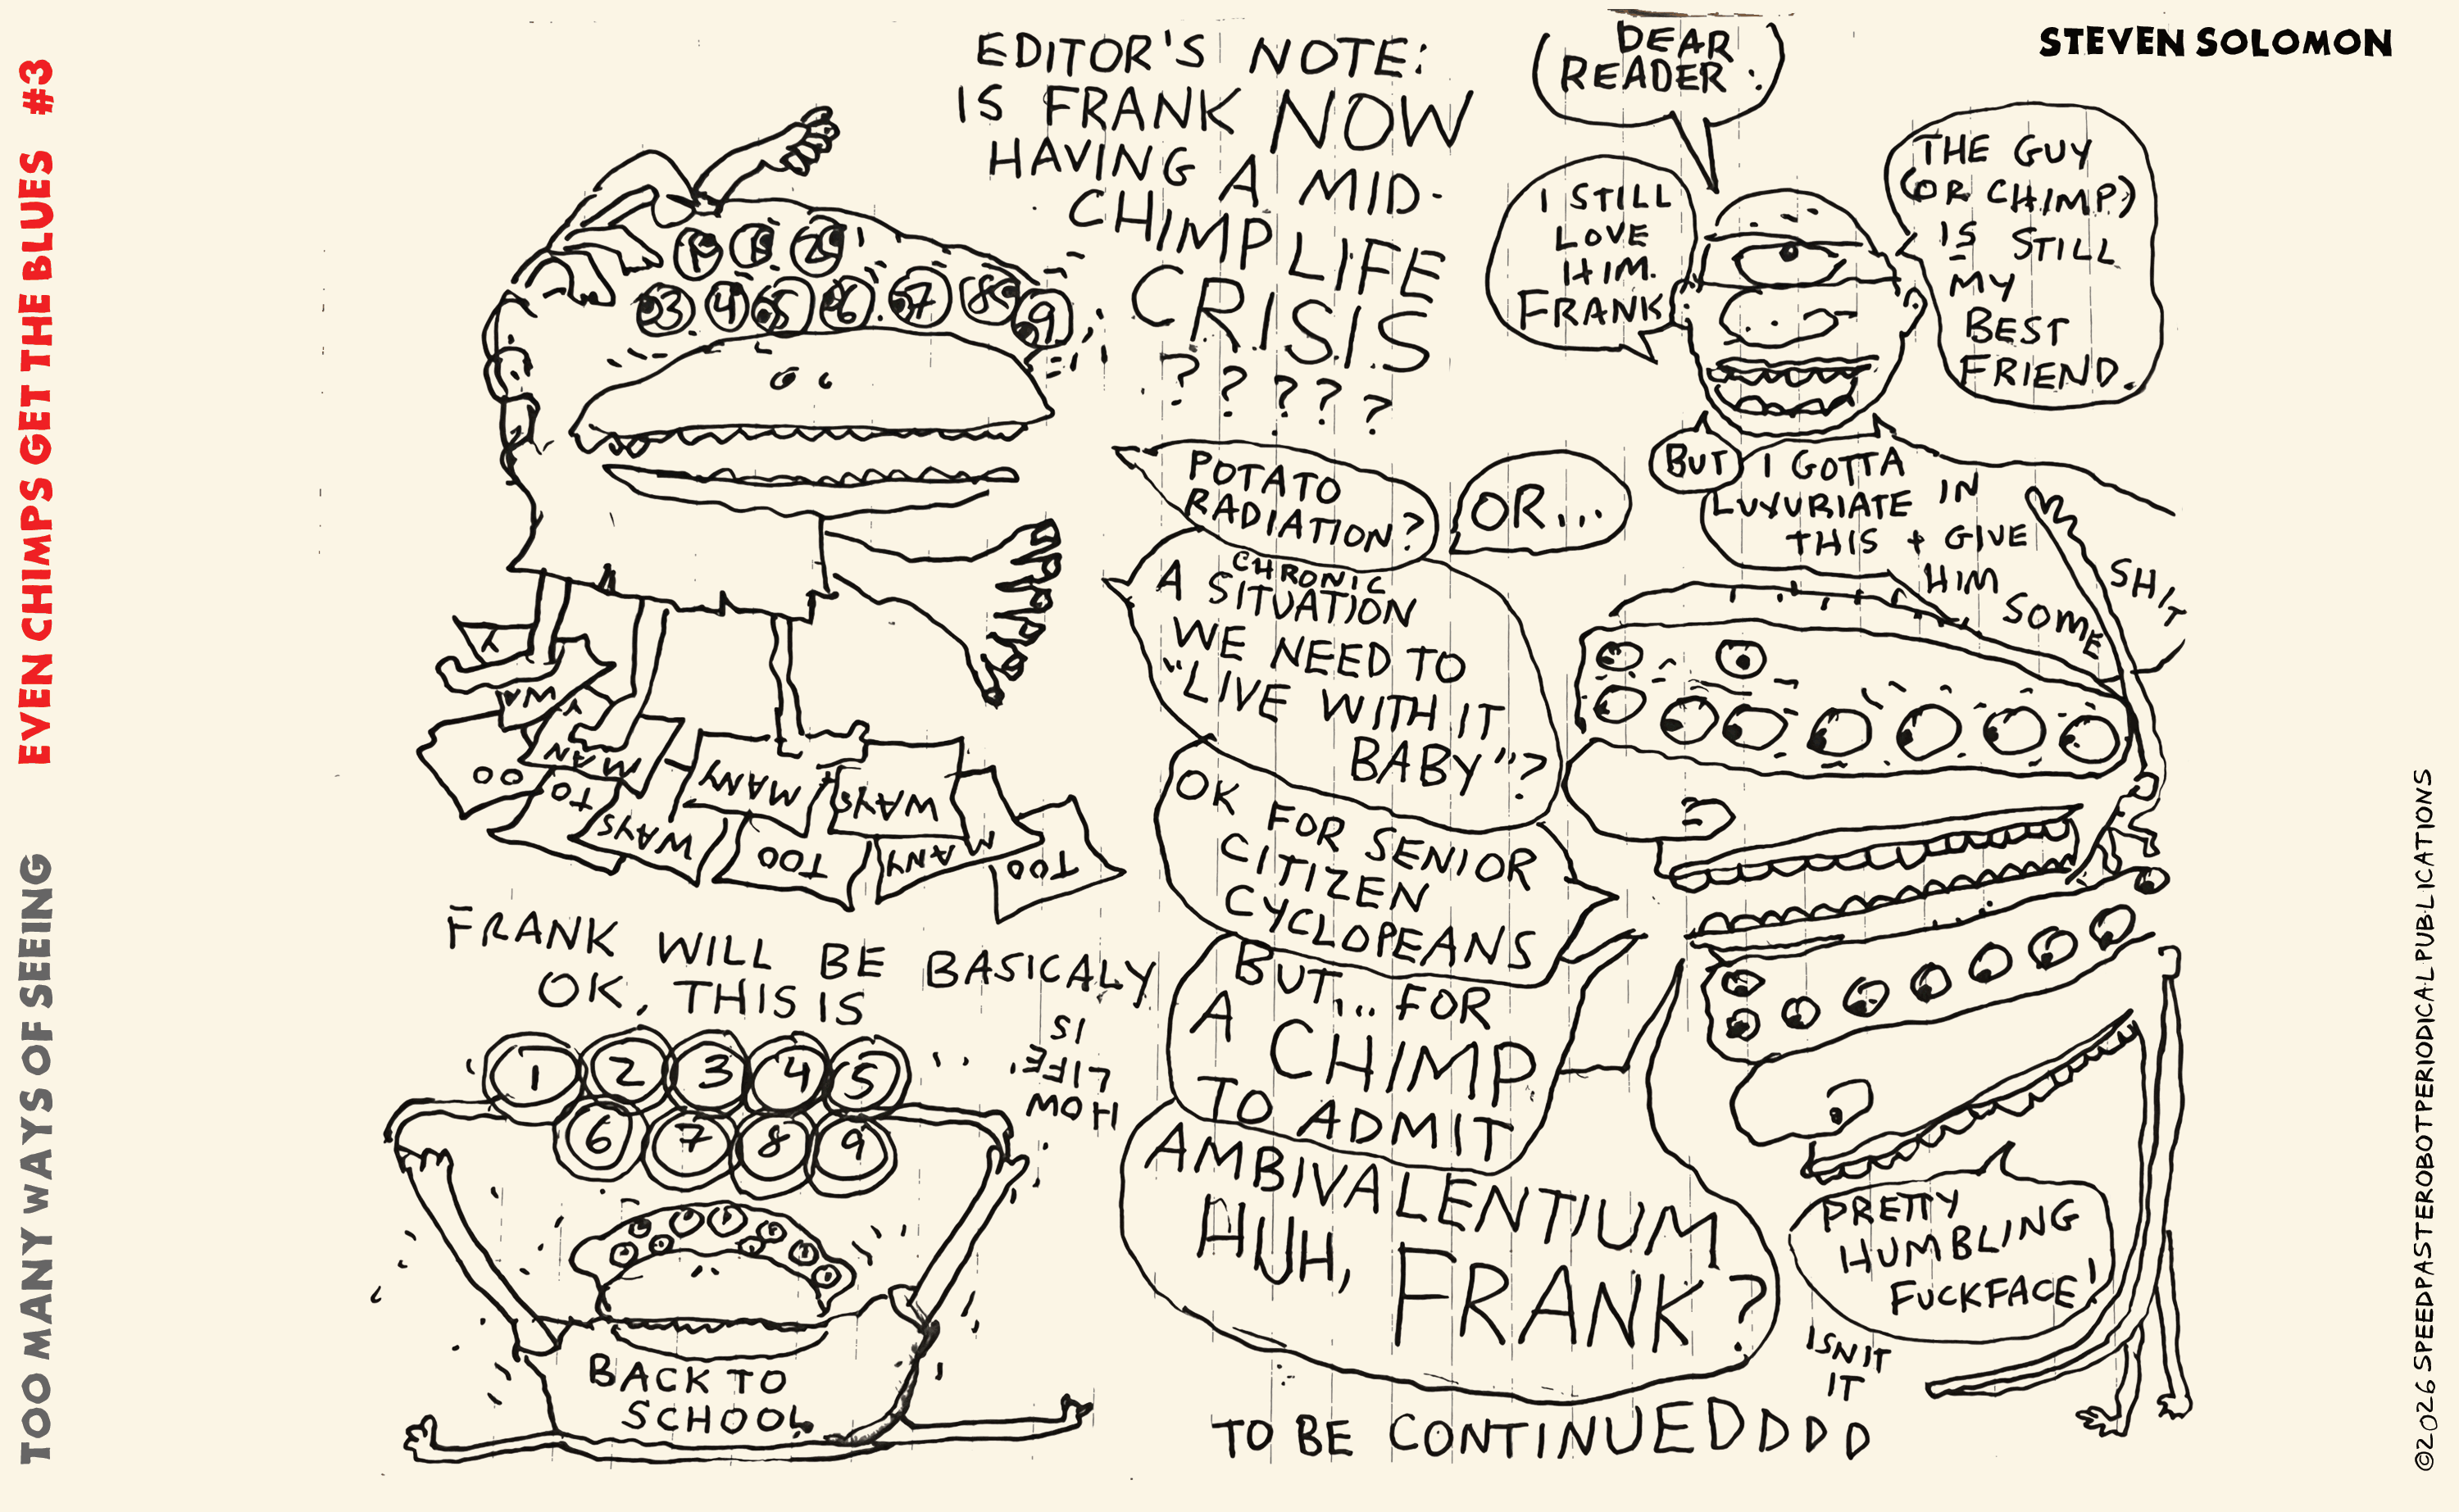 TOO MANY WAYS OF SEEING EVEN CHIMPS GET THE BLUES #3
STEVEN SOLOMON
EDITOR'S NOTE:
IS FRANK NOW
HAVING A MID-
CHIMP LIFE
CRISIS
? ? ? ? ?
DEAR
READER:
I STILL
LOVE
HIM.
FRANK
THE GUY
(OR CHIMP)
IS STILL
MY
BEST
FRIEND.
BUT
I GOTTA
LUXURIATE IN
THIS + GIVE
HIM
SOME
SHIT
1
2
3 4 5 6 7 8 9
POTATO
RADIATION?
OR...
A CHRONIC
SITUATION
WE NEED TO
"LIVE WITH IT
BABY"?
OK FOR SENIOR
CITIZEN
CYCLOPEANS
BUT... FOR
A CHIMP
TO ADMIT
AMBIVALENTIUM
HUH, FRANK?
PRETTY
HUMBLING
FUCKFACE!
ISN IT
IT
WA
Y
MAN
OO
TO
WAYS
MANY
WAYS
TOO
MANY
TOO
FRANK WILL BE BASICALY
OK, THIS IS
HOW
LIFE
IS
1 2 3 4 5
6 7 8 9
BACK TO
SCHOOL
TO BE CONTINUEDDDD
©2026 SPEEDPASTEROBOTPERIODICALPUBLICATIONS